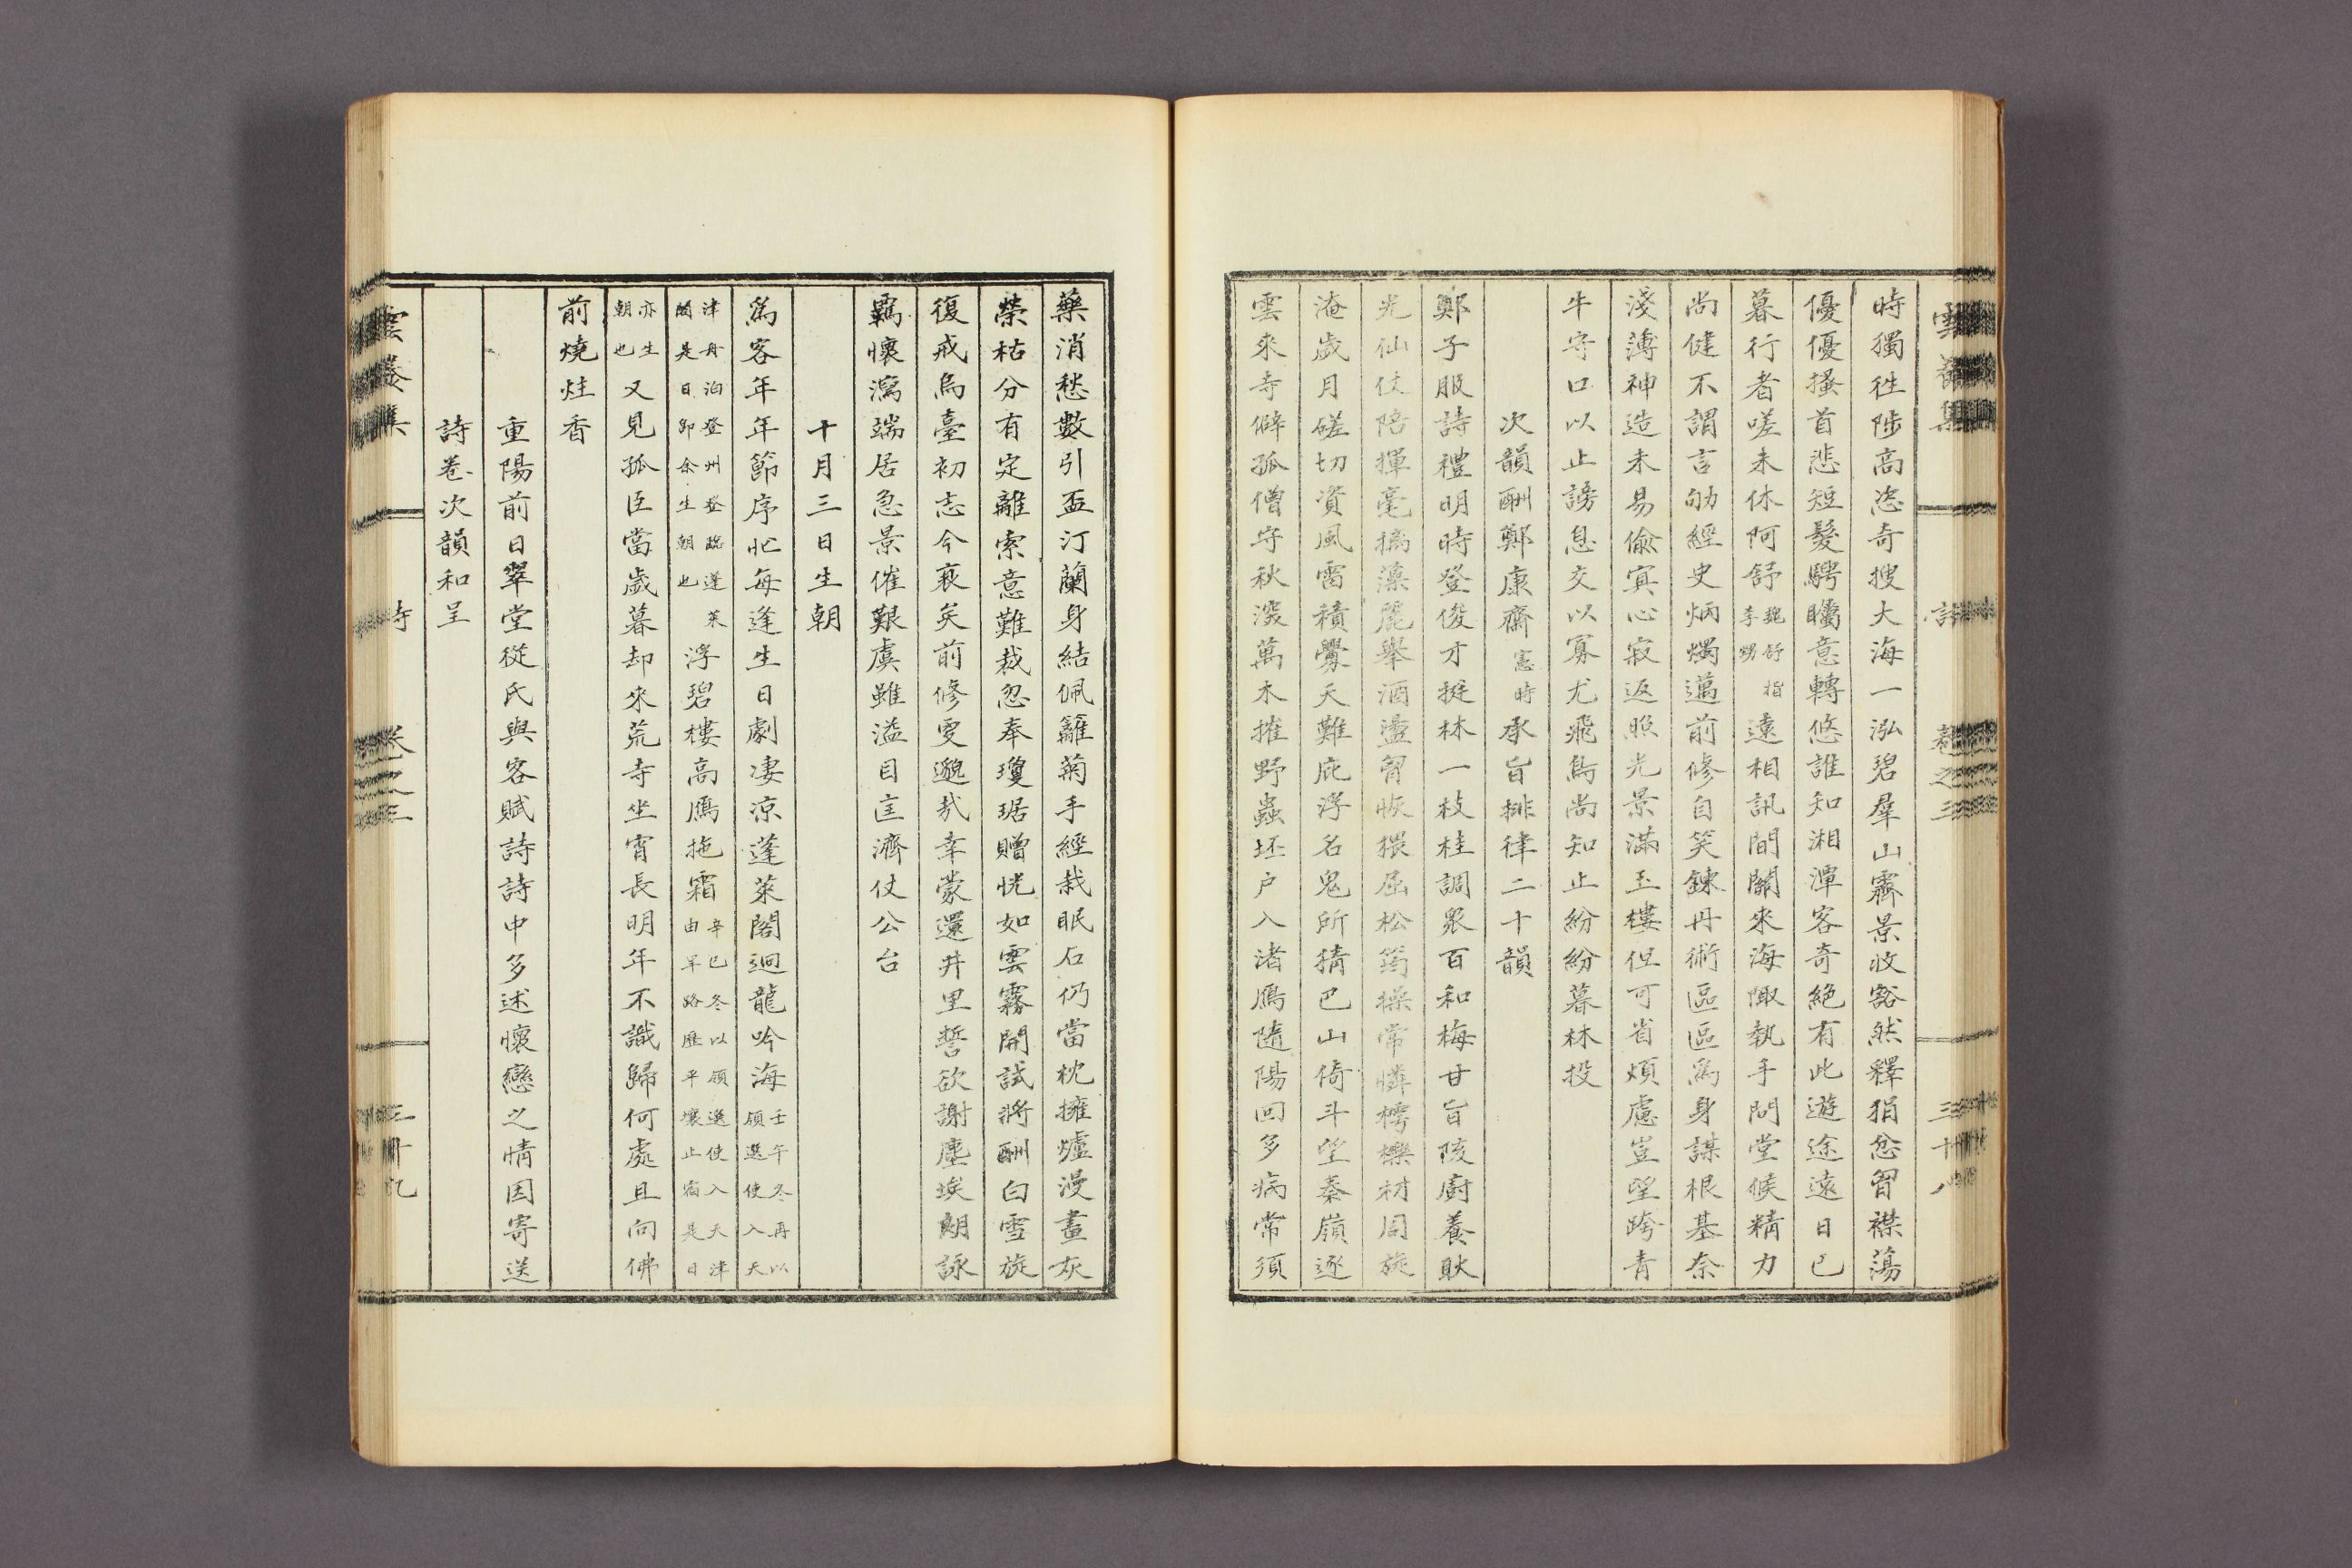 雲養集 詩 卷之三 三十八
時獨徃陟高恣奇搜大海一泓碧羣山霽景收豁然釋狷忿胷襟蕩
優優搔首悲短髮騁矚意轉悠誰知湘潭客奇絶有此遊途遠日已
暮行者嗟未休阿舒魏舒指李甥遠相訊間關來海陬執手問堂候精力
尚健不謂言劬經史炳燭邁前修自笑鍊丹術區區爲身謀根基奈
淺薄神造未易偸寘心寂返照光景滿玉樓但可省煩慮豈望跨青
牛守口以止謗息交以寡尤飛鳥尚知止紛紛暮林投
次韻酬鄭康齋憲時承旨排律二十韻
鄭子服詩禮明時登俊才挺林一枝桂調衆百和梅甘旨陔廚養耿
光仙仗陪揮毫摛藻麗擧酒盪胷恢猥屈松筠操常憐樗櫟材周旋
淹歲月磋切資風雷積釁天難庇浮名鬼所猜巴山倚斗望秦嶺逐
雲來寺僻孤僧守秋深萬木摧野蟲坯户入渚鴈隨陽回多病常須
藥消愁數引盃汀蘭身結佩籬菊手經栽眠石仍當枕擁爐漫畫灰
榮枯分有定離索意難裁忽奉瓊琚贈恍如雲霧開試將酬白雪旋
復戒烏臺初志今衰矣前修夐邈哉幸蒙還井里誓欲謝塵埃朗詠
羈懷瀉端居急景催艱虞雖溢目匡濟仗公台
十月三日生朝
爲客年年節序忙每逢生日劇凄涼蓬萊閣逈龍吟海壬午冬再以領選使入天
津舟泊登州登臨蓬萊閣是日卽余生朝也浮碧樓高鴈拖霜辛巳冬以領選使入天津由旱路歷平壤止宿是日
亦生朝也又見孤臣當歲暮却來荒寺坐宵長明年不識歸何處且向佛
前燒炷香
重陽前日翠堂從氏與客賦詩詩中多述懷戀之情因寄送
詩卷次韻和呈
雲養集 詩 卷之三 三十九